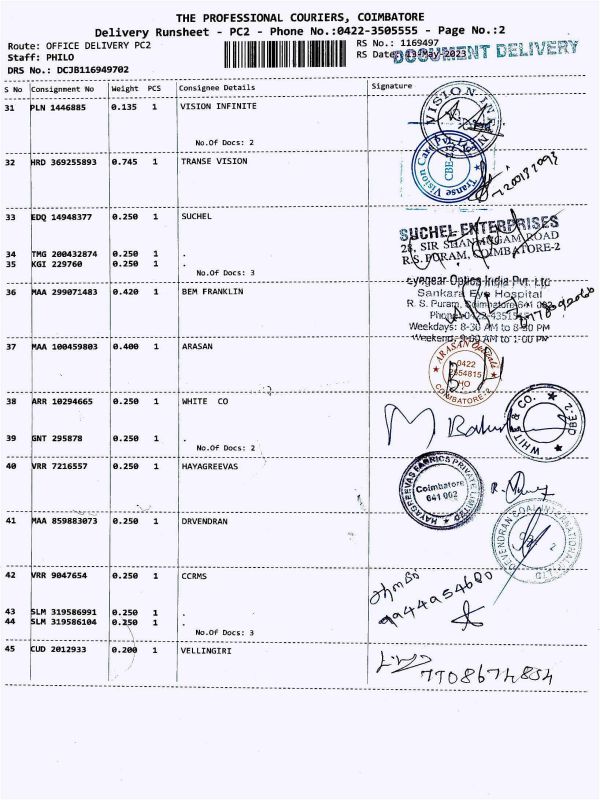 THE PROFESSIONAL COURIERS, COIMBATORE
Delivery Runsheet - PC2 - Phone No.:0422-3505555 - Page No.:2
Route: OFFICE DELIVERY PC2
RS No.: 1169497
Staff: PHILO
RS Date: 13-May-2023
DOCUMENT DELIVERY
DRS No.: DCJB116949702
S No Consignment No Weight PCS Consignee Details Signature
31 PLN 1446885 0.135 1 VISION INFINITE
VISION IN
No.Of Docs: 2
32 HRD 369255893 0.745 1 TRANSE VISION
Transe Vision Care Pvt. Ltd
CBE
33 EDQ 14948377 0.250 1 SUCHEL
SUCHEL ENTERPRISES
28, SIR SHANMUGAM ROAD
R.S. PURAM, COIMBATORE-2
34 TMG 200432874 0.250 1 .
35 KGI 229760 0.250 1 .
No.Of Docs: 3
36 MAA 299071483 0.420 1 BEM FRANKLIN
Eyegear Optics India Pvt. Ltd
Sankara Eye Hospital
R. S. Puram, Coimbatore-641 002
Phone: 0422-4351515
Weekdays: 8-30 AM to 8-30 PM
Weekend: 9-00 AM to 1-00 PM
37 MAA 100459803 0.400 1 ARASAN
ARASAN Opticals
0422
2554815
HO
COIMBATORE-2
38 ARR 10294665 0.250 1 WHITE CO
WHIT & CO. CBE-2
39 GNT 295878 0.250 1 .
No.Of Docs: 2
40 VRR 7216557 0.250 1 HAYAGREEVAS
HAYAGREEVAS FABRICS PRIVATE LIMITED
Coimbatore
641 002
41 MAA 859883073 0.250 1 DRVENDRAN
DEVENDRAN COAL INTERNATIONAL LTD
42 VRR 9047654 0.250 1 CCRMS
9944954680
43 SLM 319586991 0.250 1 .
44 SLM 319586104 0.250 1 .
No.Of Docs: 3
45 CUD 2012933 0.200 1 VELLINGIRI
7708674854